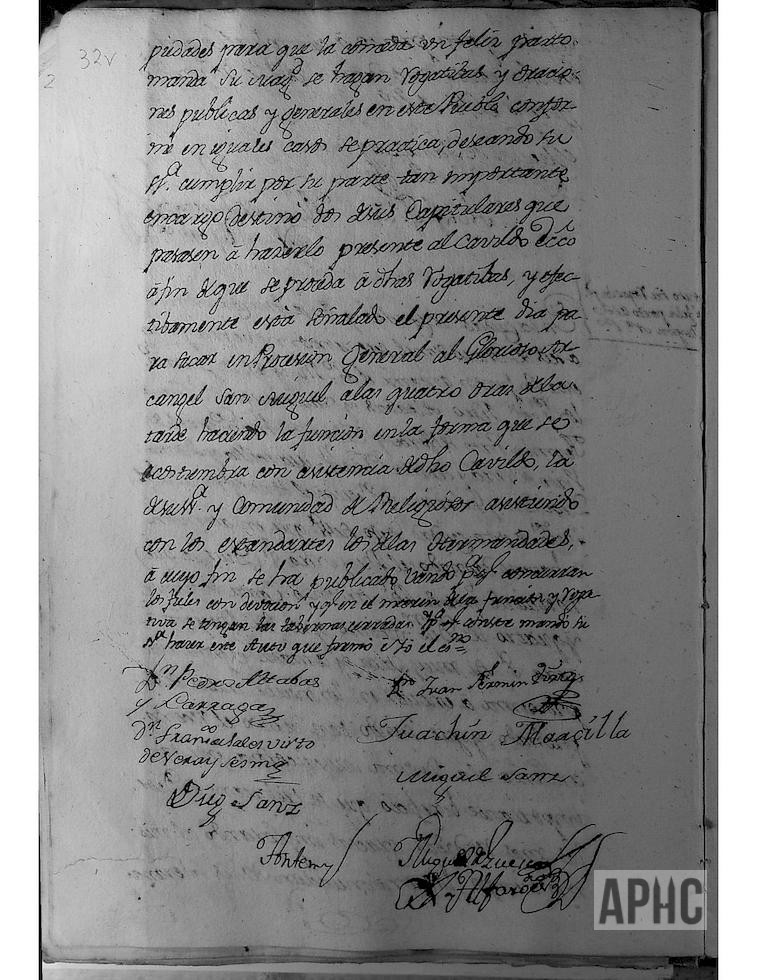 32v
2
piedades para que la conceda un feliz parto
manda su Magd. se hagan rogatibas y oracio
nes publicas y generales en este Pueblo confor
me en iguales casos se practica, deseando su
Sa. cumplir por su parte tan importante
encargo destinó dos de sus Capitulares que
pasasen á hazerlo presente al Cavildo Ecco
á fin de que se proceda á dhas Rogatibas, y efec
tibamente está señalado el presente dia pa
ra sacar en Procesion General al Glorioso Ar
cangel San Miguel á las quatro oras de la
tarde haciendo la funcion en la forma que se
acostumbra con asistencia de dho Cavildo, la
de su Sa. y Comunidad de Religiosos asistiendo
con los estandartes los de las Hermandades,
á cuyo fin se ha publicado vando pa. q. concurran
los fieles con devocion y q. en el de la funcion y roga
tiva se tengan las tabernas cerradas Y pa. q. conste mando su
Sa. hazer este Auto que firmó é Yo el esno.
Dn. Pedro Altabas
y Larraga
Dn. Juan Fermin
Dn. Franco. Salesvirto
de Vera y Sesma
Juachin Marzilla
Miguel Sanz
Diego Sanz
Antemy
Miguel
Alfaro
APHC